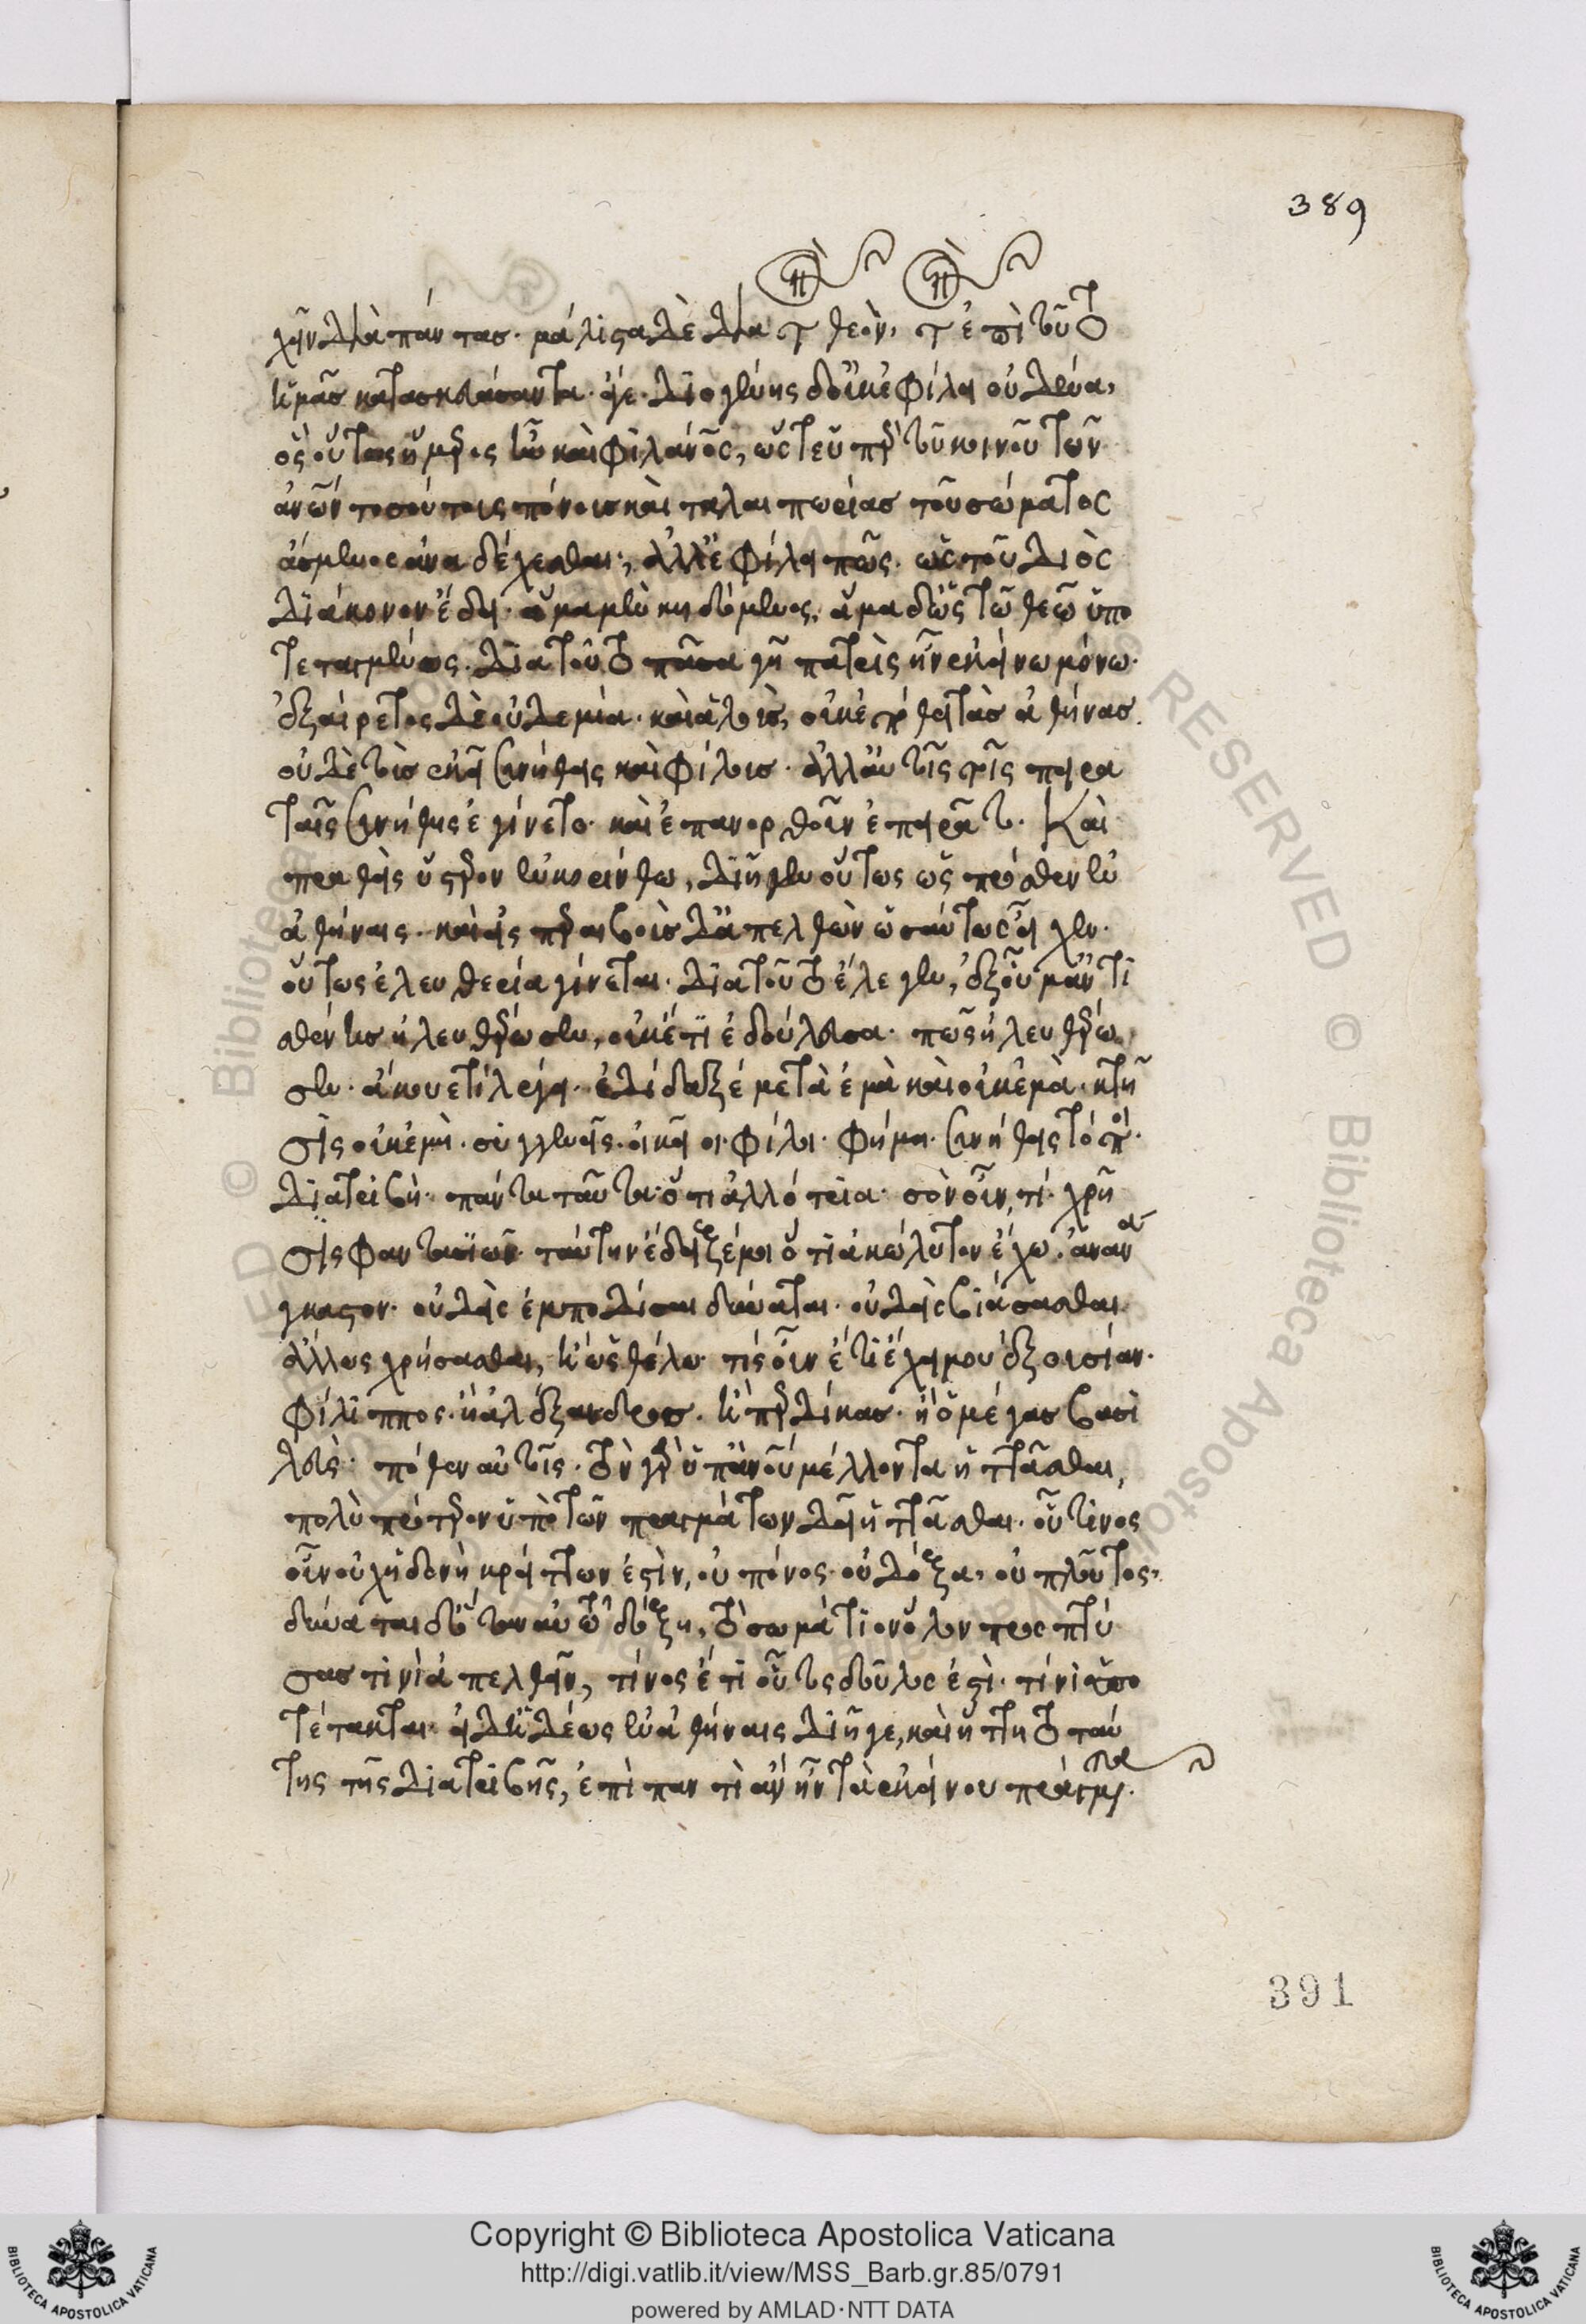 χεῖν διὰ πάντας· μάλιστα δὲ διὰ τὸν θεὸν, τὸν ἐπὶ τοῦτο
ἡμᾶς κατασκευάσαντα· ἄγε· Διογένης δ' οὐκ ἐφίλει οὐδένα,
ὃς οὕτως ἥμερος ἦν καὶ φιλάνθρωπος, ὥστε ὑπὲρ τοῦ κοινοῦ τῶν
ἀνθρώπων τοσούτους πόνους καὶ ταλαιπωρίας τοῦ σώματος
ἄσμενος ἀναδέχεσθαι; ἀλλ' ἐφίλει πῶς· ὡς τοῦ Διὸς
διάκονον ἔδει· ἅμα μὲν κηδόμενος, ἅμα δ' ὡς τῶ θεῶ ὑπο
τεταγμένος. διὰ τοῦτο πᾶσα γῆ πατρὶς ἦν ἐκείνω μόνω·
ἐξαίρετος δὲ οὐδεμία· καὶ ἁλοὺς, οὐκ ἐπόθει τὰς ἀθήνας.
οὐδὲ τοὺς ἐκεῖ συνήθεις καὶ φίλους· ἀλλ' αὐτοῖς τοῖς πειρα
ταῖς συνήθης ἐγίνετο· καὶ ἐπανορθοῦν ἐπειρᾶτο. Καὶ
πραθεὶς ὕστερον ἐν κορίνθω, διῆγεν οὕτως ὡς πρόσθεν ἐν
ἀθήναις· καὶ εἰς περαιβοὺς δ' ἂν ἀπελθὼν ὡσαύτως εἶχεν·
οὕτως ἐλευθερία γίνεται. διὰ τοῦτο ἔλεγεν, ἐξ οὗ μ' ἀντι
σθένης ἠλευθέρωσεν, οὐκέτι ἐδούλευσα· πῶς ἠλευθέρω
σεν· ἄκουε τί λέγει· ἐδίδαξέ με τὰ ἐμὰ καὶ οὐκ ἐμὰ· κτῆ
σις οὐκ ἐμή· συγγενεῖς· οἰκεῖοι· φίλοι· φήμη· συνήθεις τόποι·
διατριβή· πάντα ταῦτα ὅτι ἀλλότρια· σὸν οὖν, τί· χρῆ
σις φαντασιῶν· ταύτην ἔδειξέ μοι ὅτι ἀκώλυτον ἔχω· ἀνανά
γκαστον· οὐδεὶς ἐμποδίσαι δύναται· οὐδεὶς βιάσασθαι
ἄλλως χρήσασθαι, ἢ ὡς θέλω· τίς οὖν ἔτι ἔχει μου ἐξουσίαν·
φίλιππος· ἢ ἀλέξανδρος· ἢ περδίκας· ἢ ὁ μέγας βασι
λεύς· πόθεν αὐτοῖς· τὸν γὰρ ὑπ' ἀνθρώπου μέλλοντα ἡττᾶσθαι,
πολὺ πρότερον ὑπὸ τῶν πραγμάτων δεῖ ἡττᾶσθαι· οὗτινος
οὖν οὐχ ἡδονὴ κρείττων ἐστὶν, οὐ πόνος· οὐ δόξα, οὐ πλοῦτος,
δύναται δ' ὅταν αὐτῶ δόξη, τὸ σωμάτιον ὅλον προσπτύ
σας τινὶ ἀπελθεῖν, τίνος ἔτι οὗτος δοῦλός ἐστι· τίνι ὑπο
τέτακται· εἰ δ' ἡδέως ἐν ἀθήναις διῆγε, καὶ ἥττητο ταύ
της τῆς διατριβῆς, ἐπὶ παντὶ ἂν ἦν τὰ ἐκείνου πράγματα·
389
391
Copyright © Biblioteca Apostolica Vaticana
http://digi.vatlib.it/view/MSS_Barb.gr.85/0791
powered by AMLAD·NTT DATA